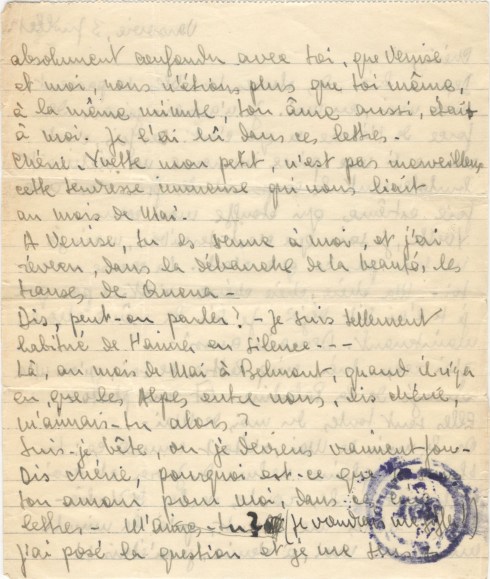 absolument confondu avec toi, que Venise
et moi, nous n'étions plus que toi même,
à la même minute, ton âme aussi, était
à moi. Je l'ai lû dans ces lettres.
Chérie. Yvette mon petit, n'est pas merveilleux
cette tendresse immense qui nous liait
au mois de Mai.
A Venise, tu es venue à moi et j'ai
revécu, dans la débauche de la beauté, les
transes de
Dis, peut-on parler? - Je suis tellement
habitué de t'aimer en silence - -
Là, au mois de Mai à Belmont, quand il n'y a
eu, que les Alpes entre nous, dis chérie,
m'aimais-tu alors?
Suis-je bête, ou je deviens vraiment fou-
Dis chérie, pourquoi est-ce que
ton amour pour moi, dans ces
lettres - M'aimes-tu? (je voudrais
j'ai posé la question et je me